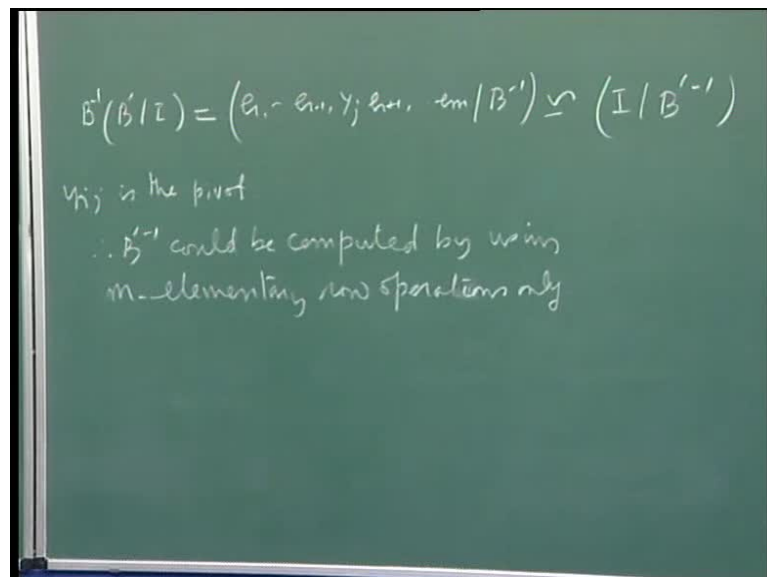 B⁻¹(B'/I) = (e₁, - eᵣ₋₁, Yⱼ eᵣ₊₁, em / B⁻¹) ≃ (I / B'⁻¹)
yᵣⱼ is the pivot
∴ B'⁻¹ could be computed by using
m-elementary row operations only